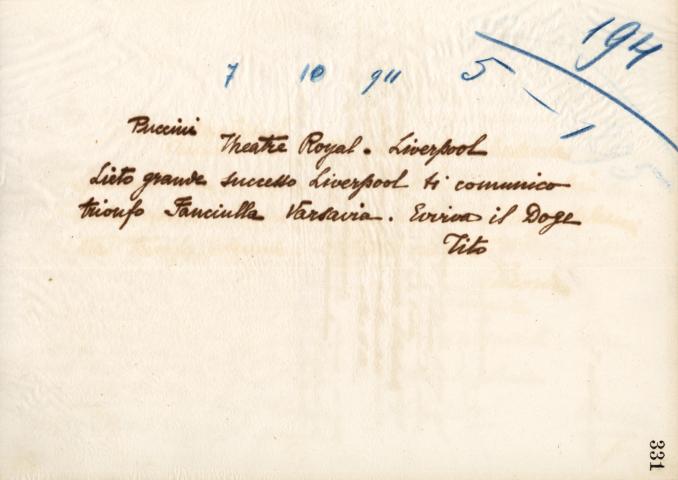 194
7 10 911 5-1
Puccini
Theatre Royal. Liverpool
Lieto grande successo Liverpool ti comunico
trionfo Fanciulla Varsavia. Evviva il Doge
Tito
331